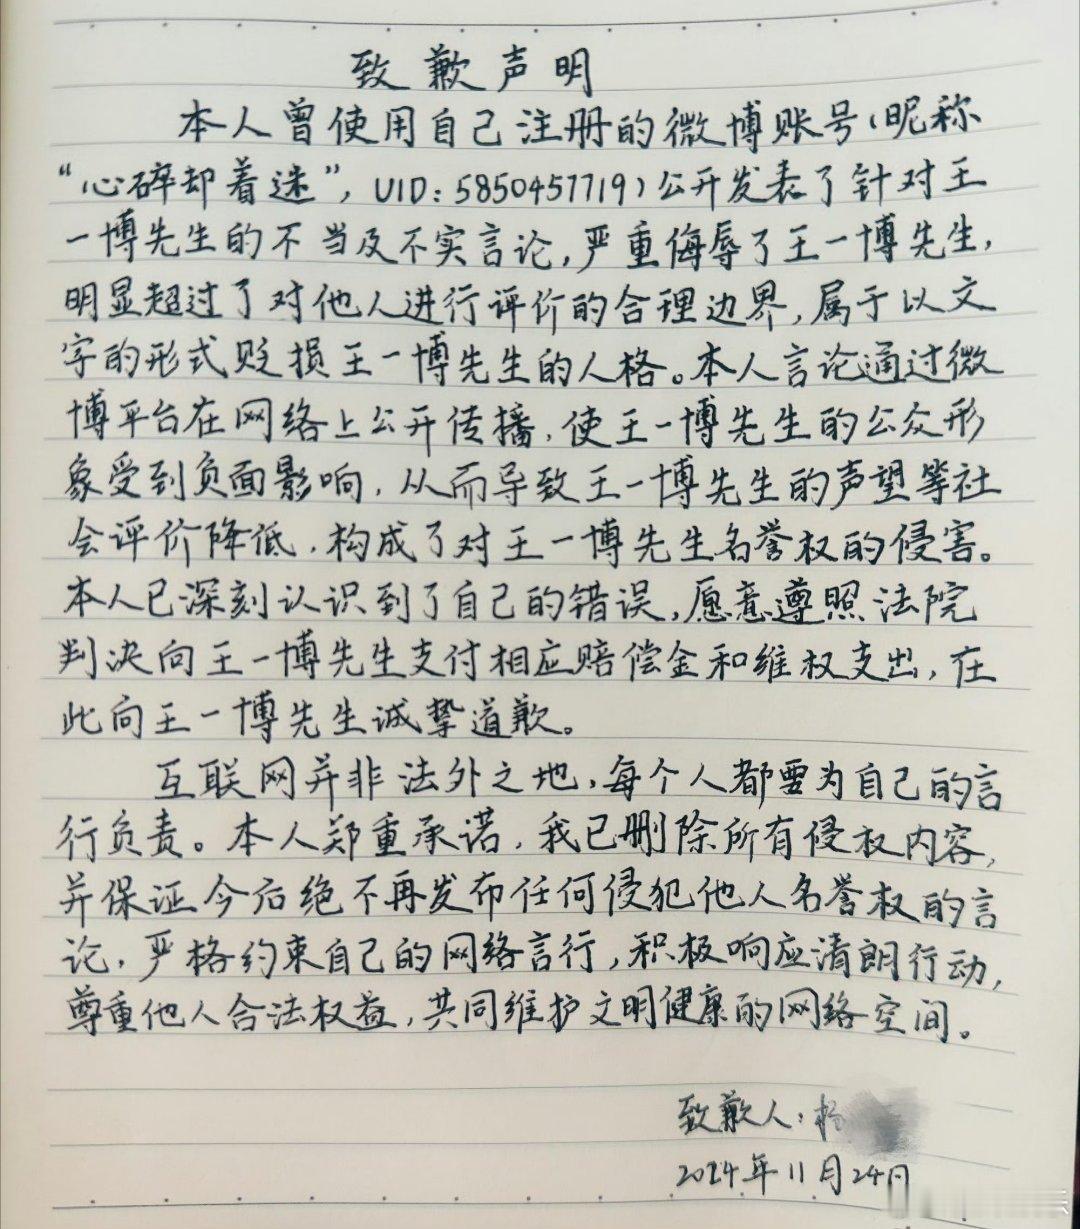 致歉声明
本人曾使用自己注册的微博账号(昵称
“心碎却着迷”,UID:5850457719)公开发表了针对王
一博先生的不当及不实言论,严重侮辱了王一博先生,
明显超过了对他人进行评价的合理边界,属于以文
字的形式贬损王一博先生的人格。本人言论通过微
博平台在网络上公开传播,使王一博先生的公众形
象受到负面影响,从而导致王一博先生的声望等社
会评价降低,构成了对王一博先生名誉权的侵害。
本人已深刻认识到了自己的错误,愿意遵照法院
判决向王一博先生支付相应赔偿金和维权支出,在
此向王一博先生诚挚道歉。
互联网并非法外之地,每个人都要为自己的言
行负责。本人郑重承诺,我已删除所有侵权内容,
并保证今后绝不再发布任何侵犯他人名誉权的言
论,严格约束自己的网络言行,积极响应清朗行动,
尊重他人合法权益,共同维护文明健康的网络空间。
致歉人:杨
2024年11月24日